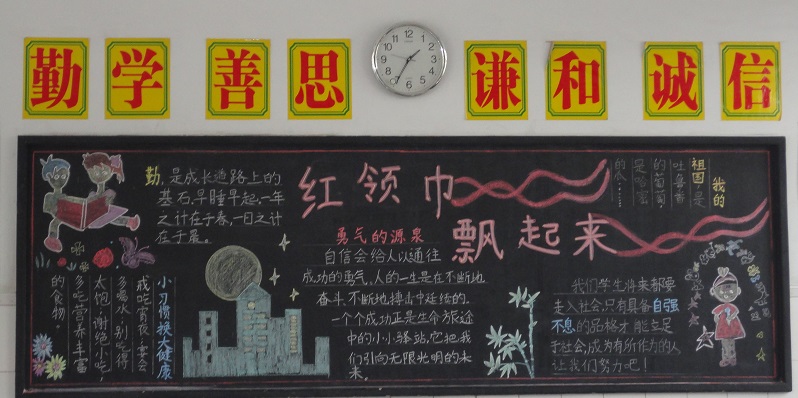 勤学 善思 谦和 诚信
12
1
2
3
4
5
6
7
8
9
10
11
勤,是成长道路上的
基石,早睡早起,一年
之计在于春,一日之计
在于晨。
红领巾
飘起来
我的
祖国是
吐鲁番
的葡萄,
是哈密
的瓜……
勇气的源泉
自信会给人以通往
成功的勇气。人的一生是在不断地
奋斗、不断地搏击中延续的。
一个个成功正是生命旅途
中的小小驿站,它把我
们引向无限光明的未
来。
小习惯换大健康
戒吃宵夜,宴会
多喝水,别吃得
太饱,谢绝小吃,
多吃营养丰富
的食物。
我们学生将来都要
走入社会,只有具备自强
不息的品格才能立足
于社会,成为有所作为的人
让我们努力吧!